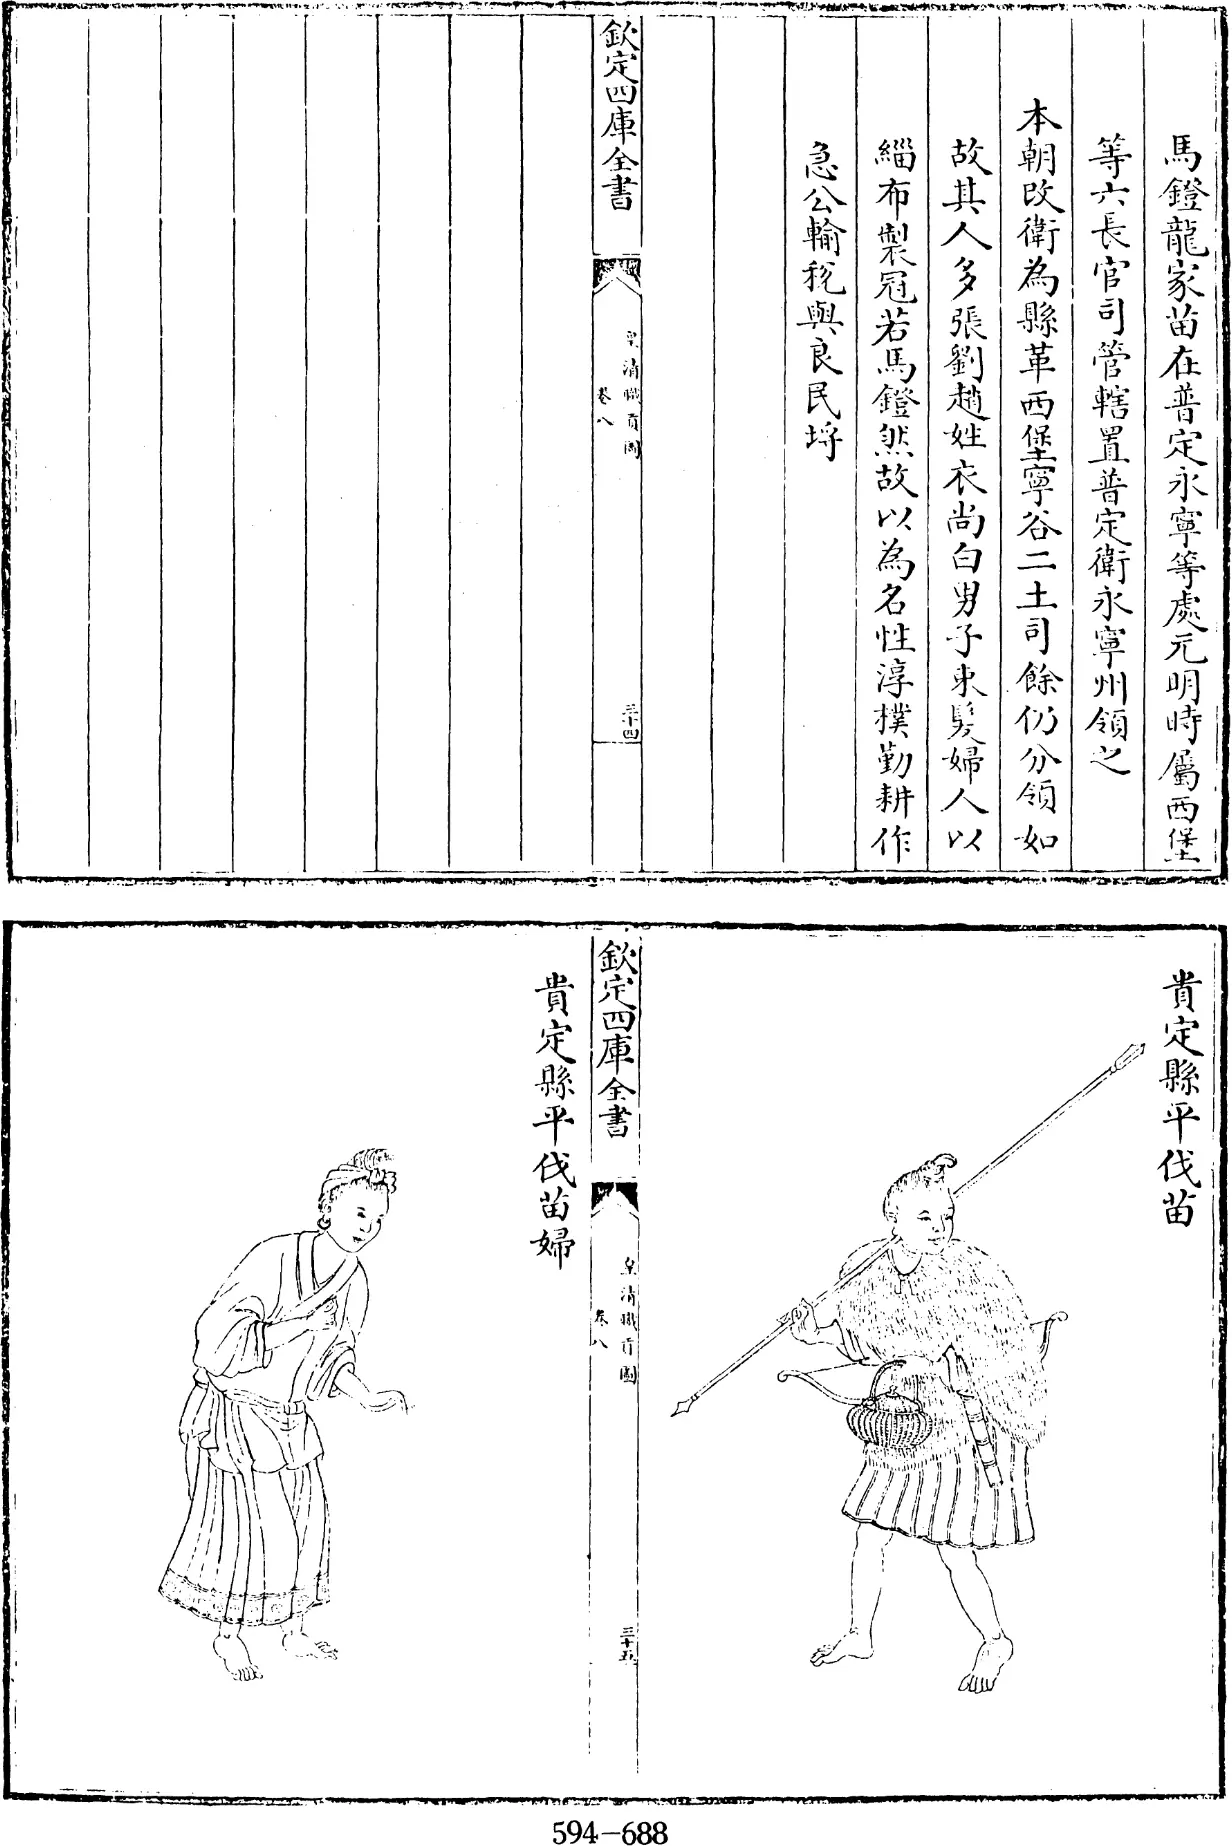 馬鐙龍家苗在普定永寧等處元明時屬西堡
等六長官司管轄置普定衛永寧州領之
本朝改衛為縣革西堡寧谷二土司餘仍分領如
故其人多張劉趙姓衣尚白男子束髮婦人以
緇布製冠若馬鐙然故以為名性淳樸勤耕作
急公輸稅與良民埒
欽定四庫全書
皇清職貢圖
卷八
三十四
貴定縣平伐苗
欽定四庫全書
皇清職貢圖
卷八
三十五
貴定縣平伐苗婦
594-688